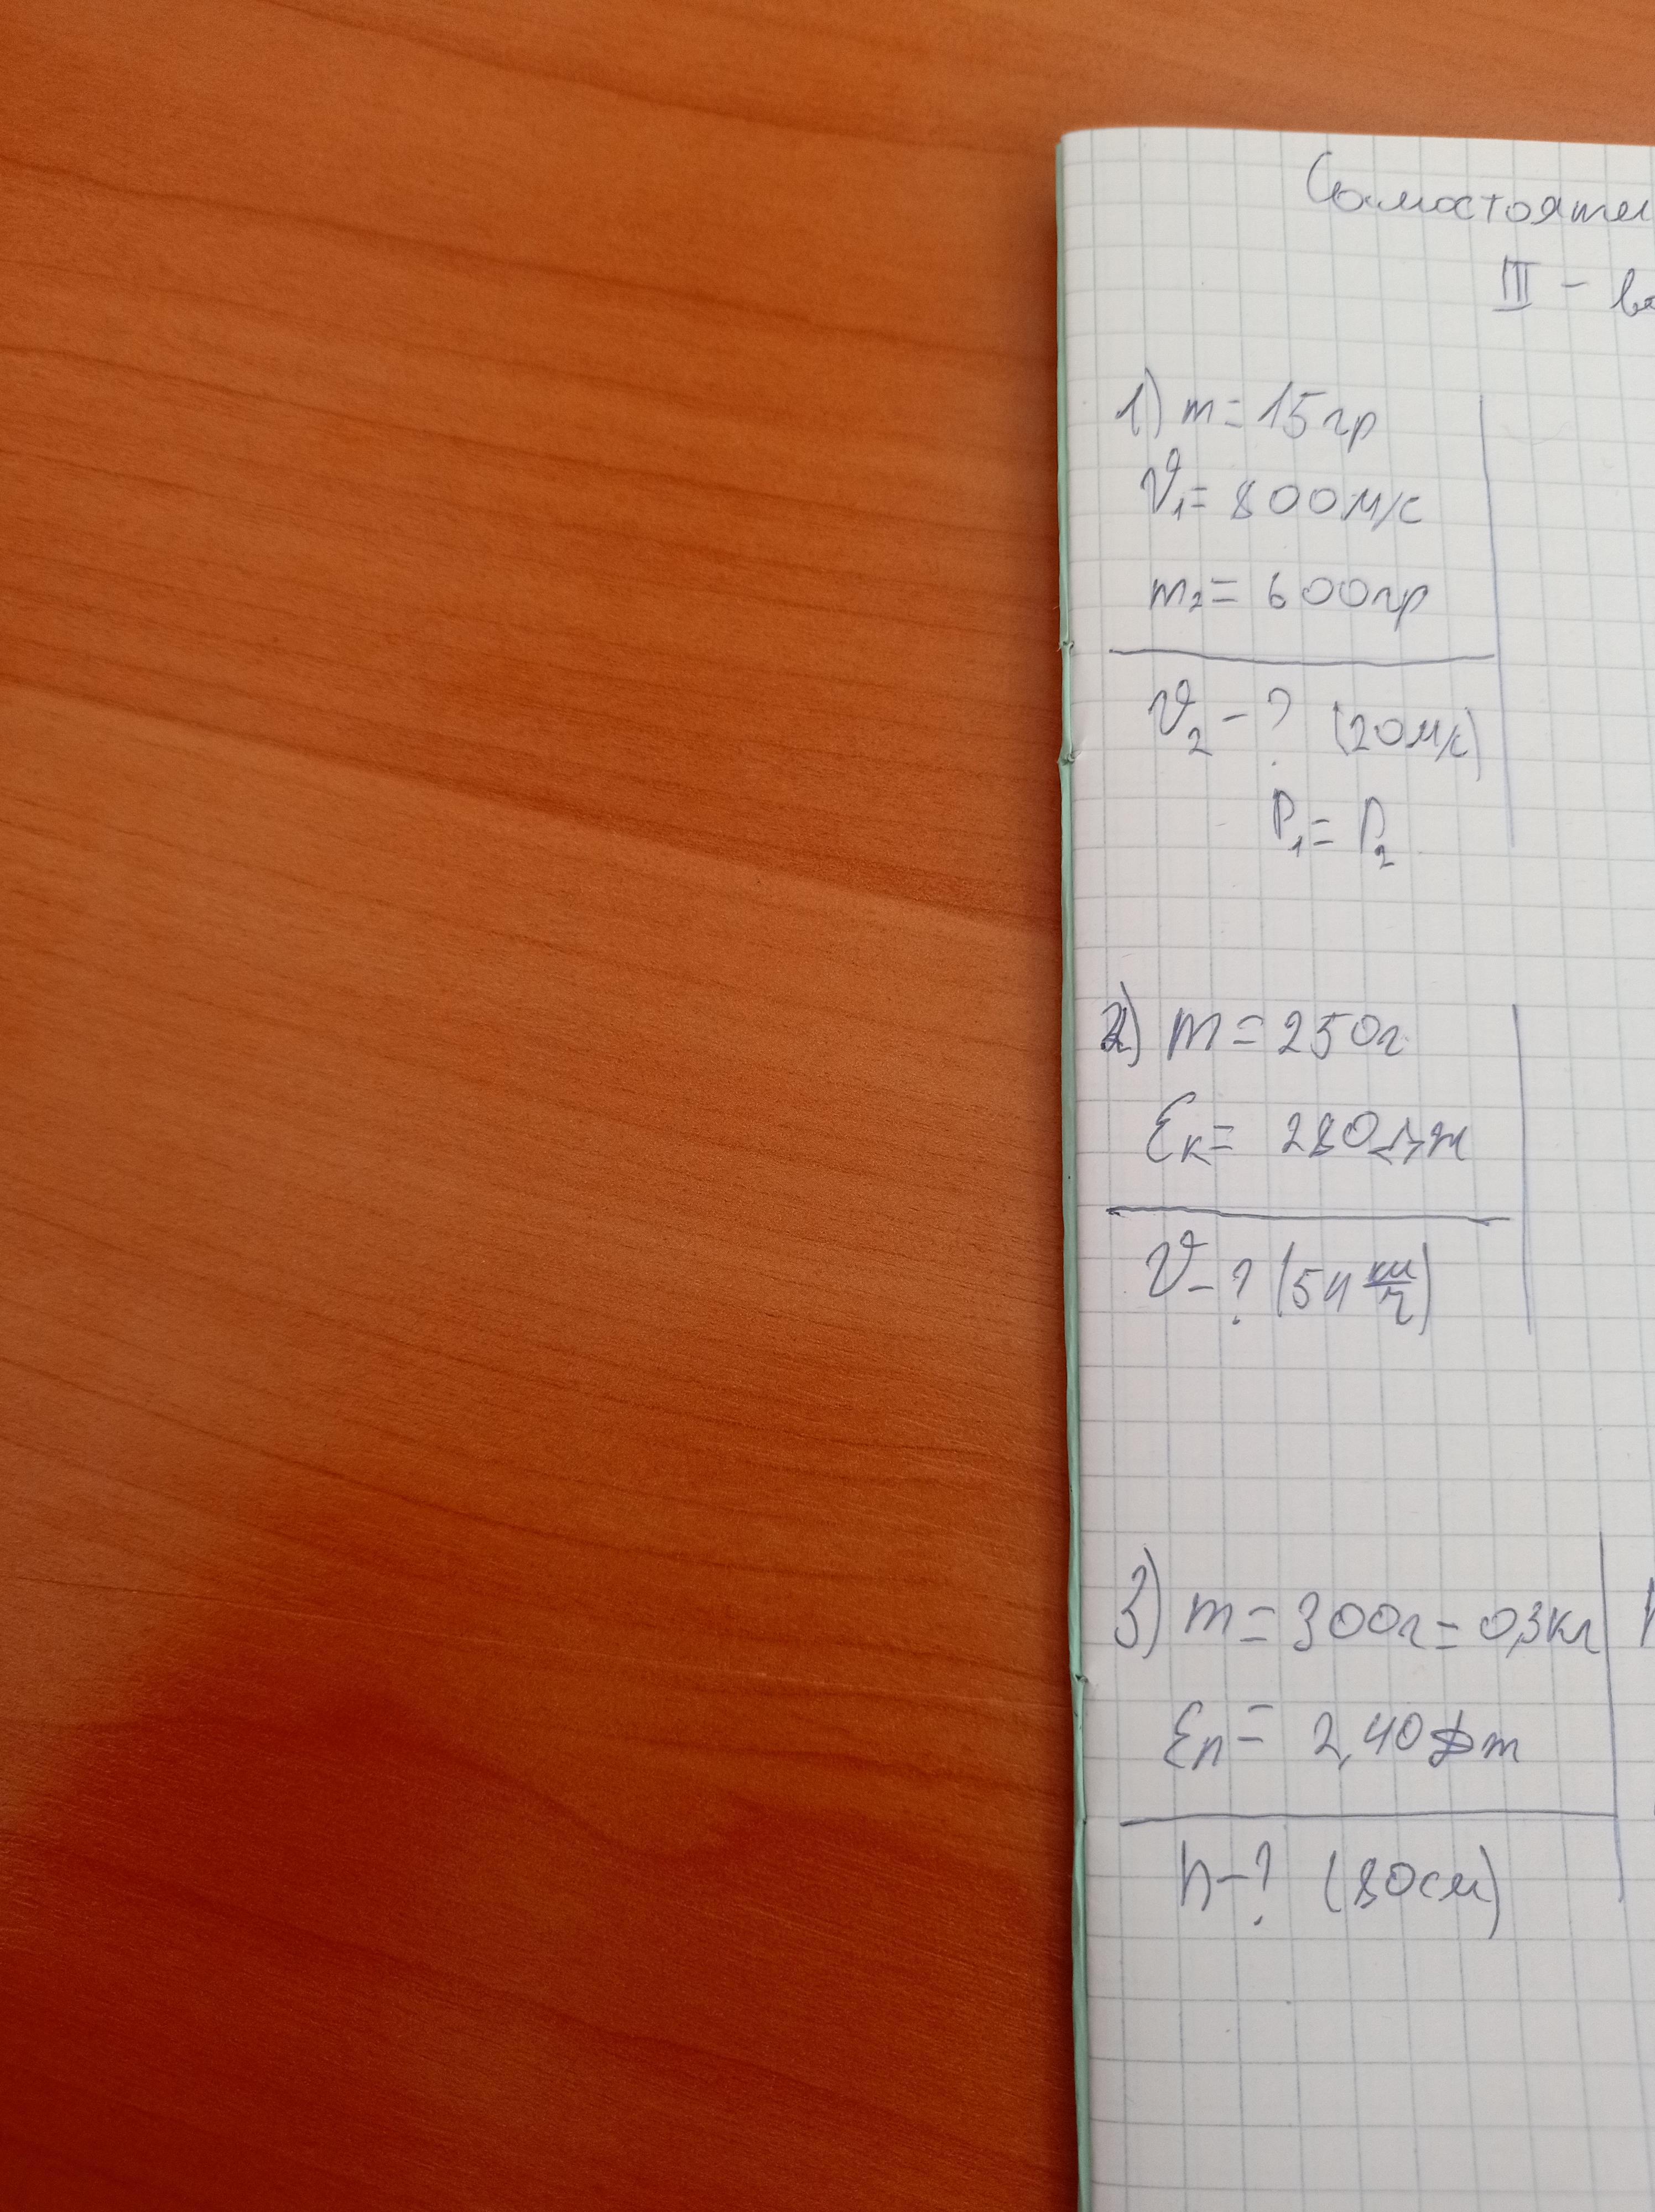 Самостояте
III - ва
1) m = 15 гр
V₁ = 800 м/с
m₂ = 600 гр
V₂ - ? (20 м/с)
P₁ = P₂
2) m = 250 г
Eк = 280 Дж
V - ? (54 км/ч)
3) m = 300 г = 0,3 кг
Eп = 2,40 Дж
h - ? (80 см)